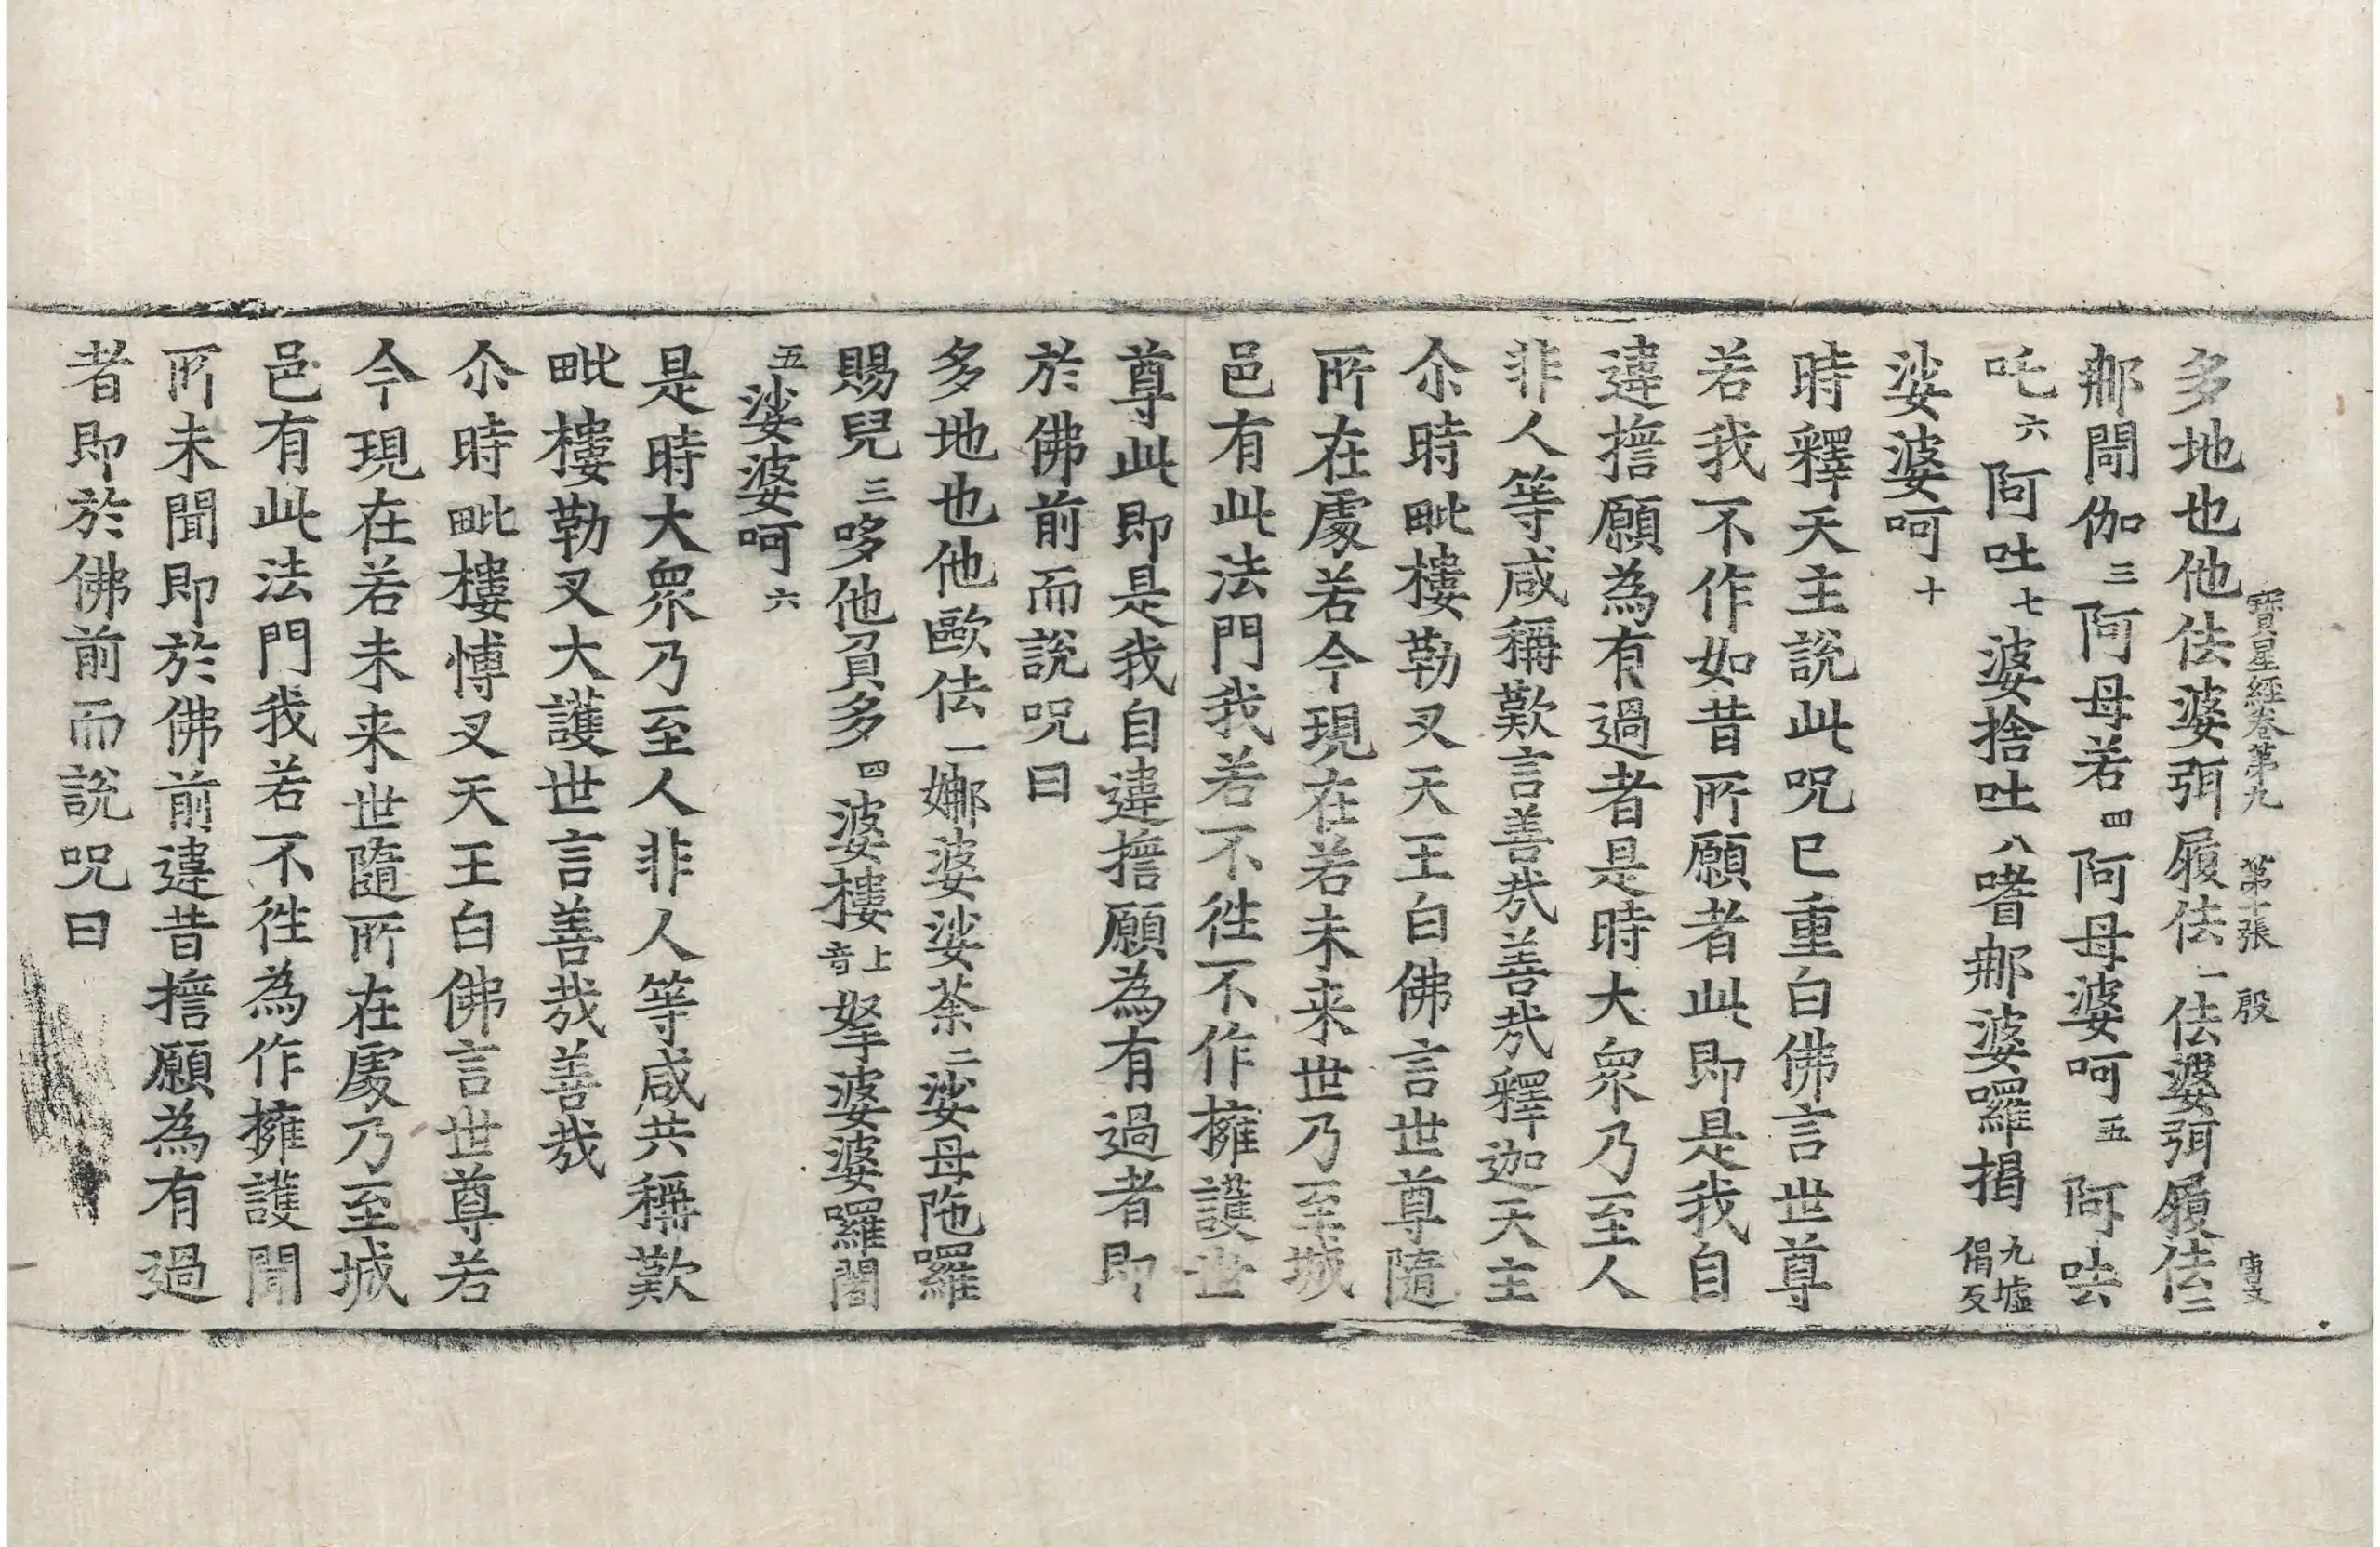 寶星經卷第九 第十張 殷
多地也他佉婆弭履佉一佉婆弭履佉二
那閜伽三阿母若四阿母婆呵五阿呿
吒六阿吐七婆捨吐八嗜那婆囉揭九墟偈反
娑婆呵十
時釋天主說此呪已重白佛言世尊
若我不作如昔所願者此即是我自
違擔願為有過者是時大衆乃至人
非人等咸稱歎言善哉善哉釋迦天主
尒時毗樓勒叉天王白佛言世尊隨
所在處若今現在若未来世乃至城
邑有此法門我若不往不作擁護世
尊此即是我自違擔願為有過者即
於佛前而說呪曰
多地也他歐佉一娜婆娑荼二娑母陁羅
賜兒三哆他負多四婆樓上音拏婆婆囉闍
五娑婆呵六
是時大衆乃至人非人等咸共稱歎
毗樓勒叉大護世言善哉善哉
尒時毗樓博叉天王白佛言世尊若
今現在若未来世隨所在處乃至城
邑有此法門我若不往為作擁護聞
所未聞即於佛前違昔擔願為有過
者即於佛前而說呪曰